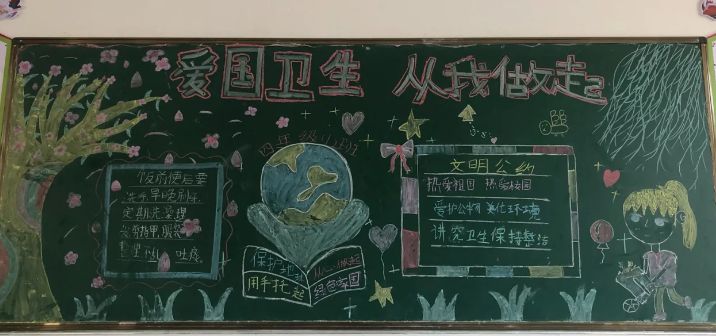 爱国卫生 从我做起
四年级
饭前便后要
洗手早晚刷牙
定期洗澡理
文明公约
热爱祖国 热爱校园
爱护公物 美化环境
讲究卫生 保持整洁
保护地球
用手托起
从我做起
绿色家园